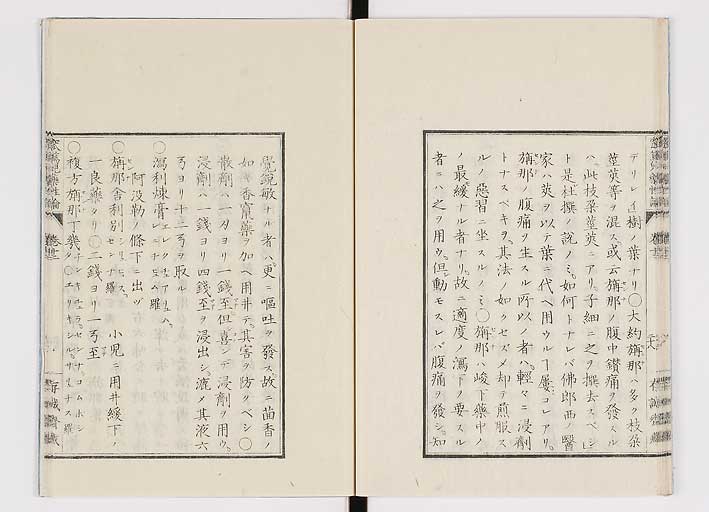 デリレイ樹ノ葉ナリ〇大約旃那ハ多ク枝梁
莖莢等ヲ混ス或云旃那ノ腹中鑚痛ヲ發スル
ハ此枝梁莖莢ニアリ子細ニ之ヲ撰去スベシ
ト是杜撰ノ説ノミ如何トナレバ佛郎西ノ醫
家ハ莢ヲ以テ葉ニ代ヘ用ウルヿ屡コレアリ
旃那ノ腹痛ヲ生スル所以ノ者ハ輕々ニ浸劑
トナスベキヲ其法ノ如クセズメ却テ煎服ス
ルノ惡習ニ坐スルノミ〇旃那ハ峻下藥中ノ
ノ最緩ナル者ナリ故ニ適度ノ瀉下ヲ要スル
者ニハ之ヲ用ウ但動モスレバ腹痛ヲ發シ知
覺鋭敏ナル者ハ更ニ嘔吐ヲ發ス故ニ茴香ノ
如キ香竄藥ヲ加ヘ用井テ其害ヲ防クベシ〇
散劑ハ一刃ヨリ一錢至但喜ンデ浸劑ヲ用ウ
浸劑ハ一錢ヨリ四錢至ヲ浸出シ漉メ其液六
弓ヨリ十二弓ヲ取ル
〇瀉利煉膏
阿没勒ノ條下ニ出ヅ
〇旃那舎利別 小児ニ用井緩下ノ
一良藥タリ〇二錢ヨリ一弓至
〇複方旃那丁幾